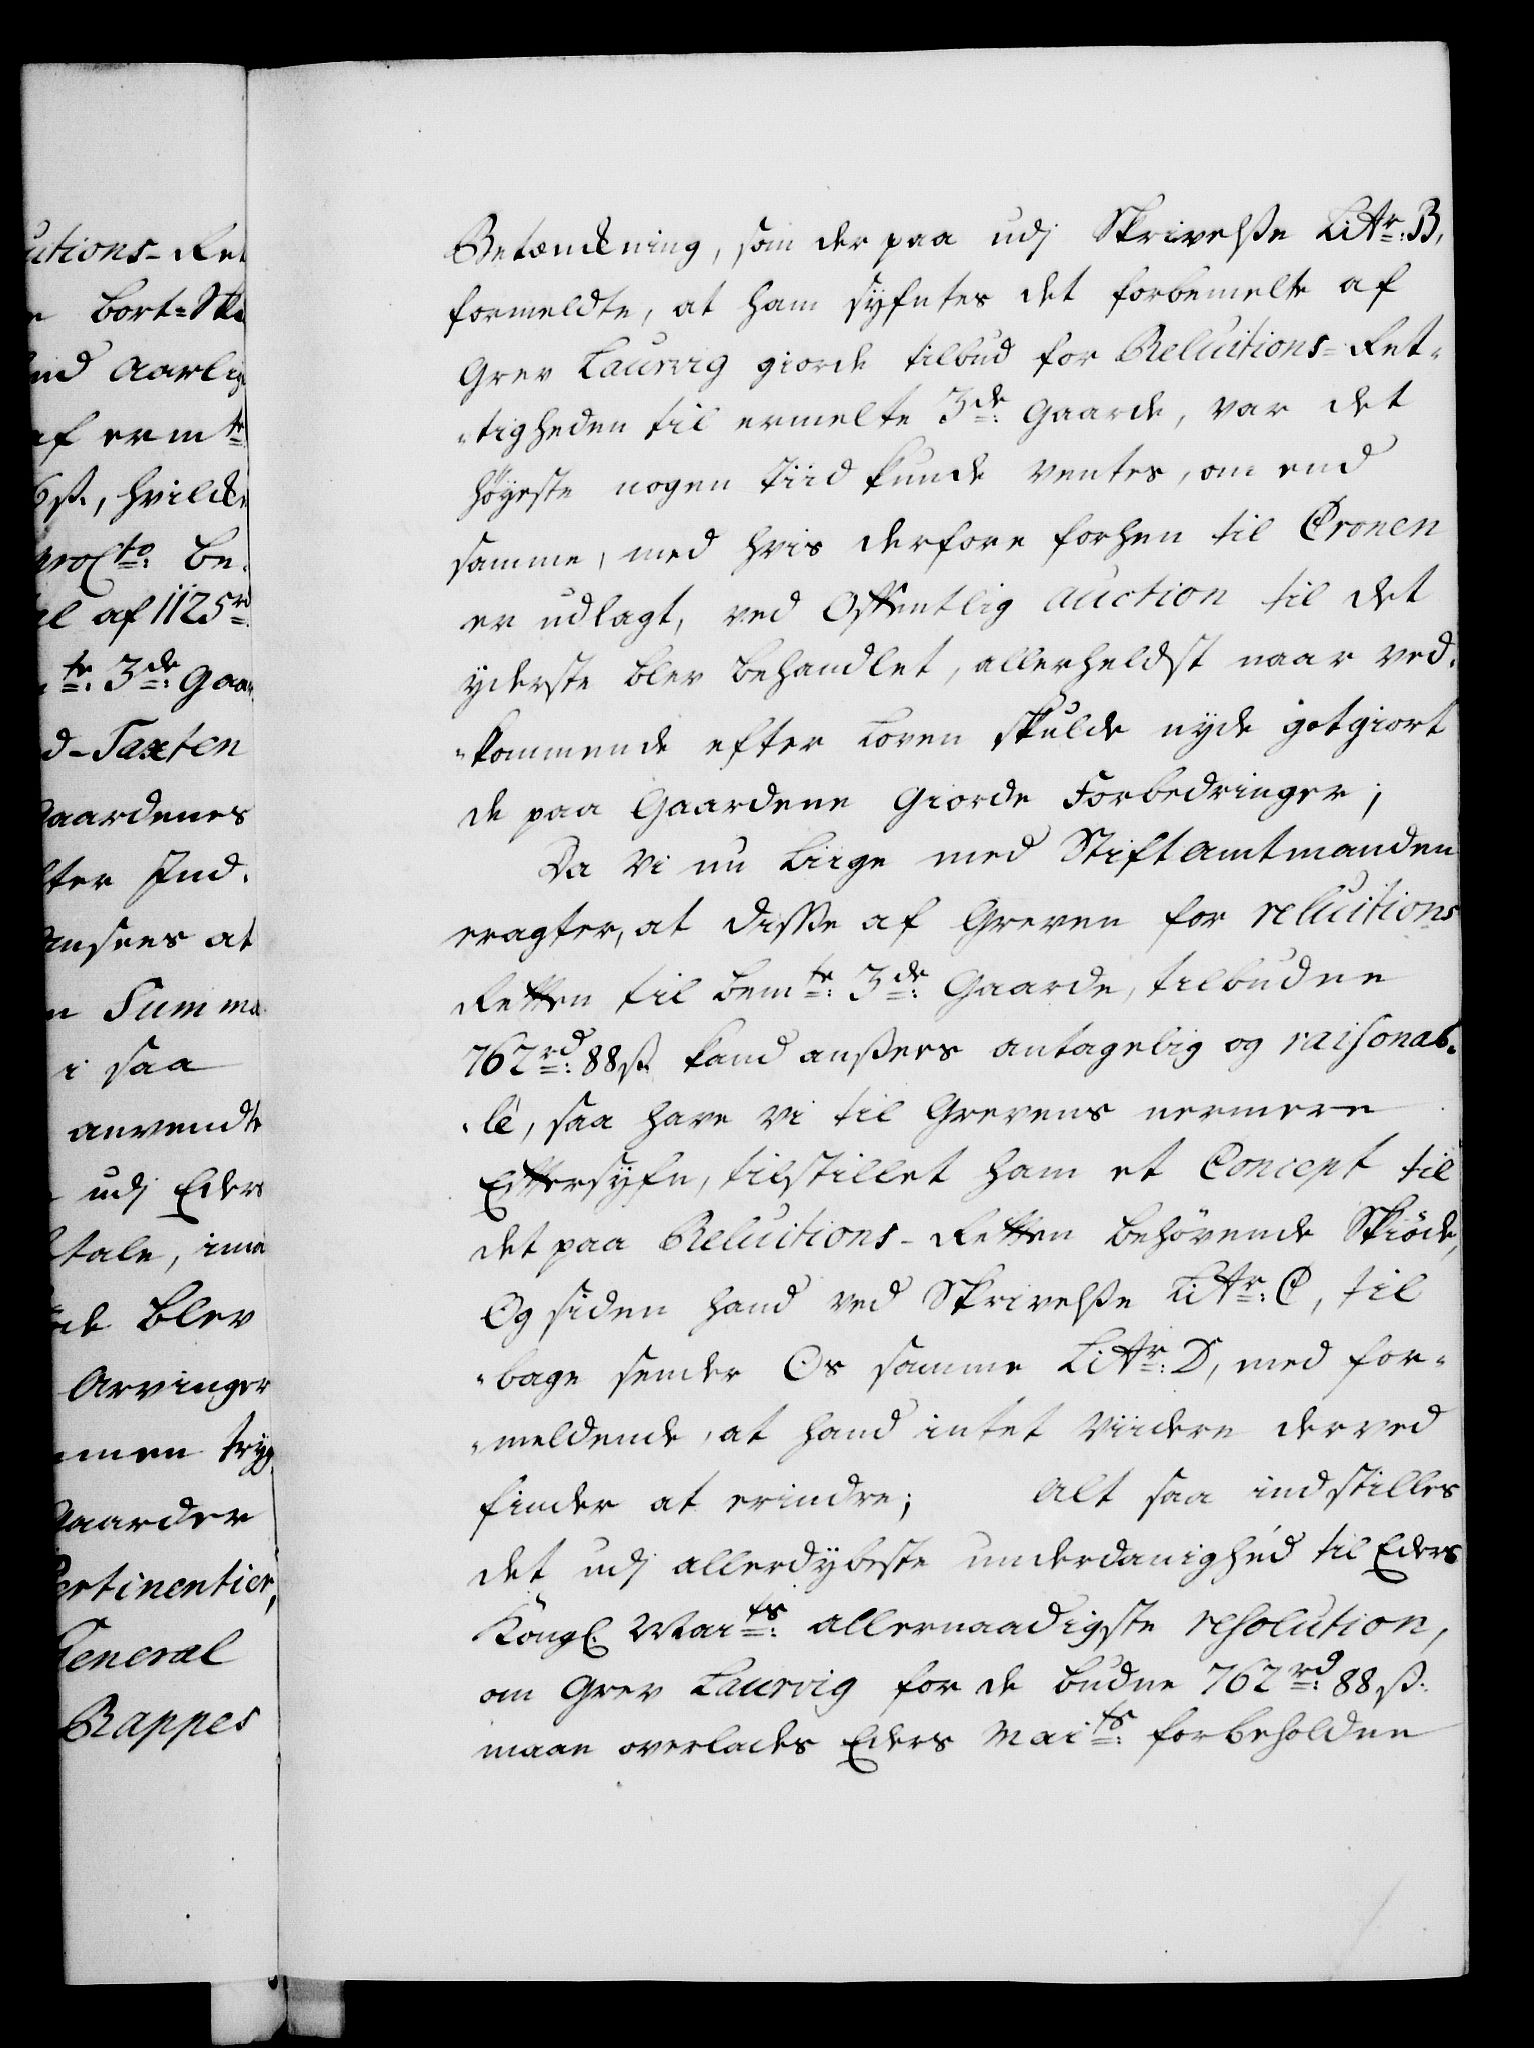 utions-Ret
e bort-Ske
ind Aarlig
af ermte
6 ß., hvilke
proCto: be-
el af 1125rd
te: 3de: Gaa-
d-Taxten
Gaardenes
fter Ind-
ansees at
n Summa
i saa
anvendte
udj Eders
tale, ima
de blev
Arvinger
men tryg
Gaarder
Pertinentier,
General
Rappes
Betænckning, som der paa udj Skrivelße Littr: B,
formeldte, at ham syfntes det forbemelte af
Grev Laurvig giorde tilbud for Reluitions-Ret-
-tigheden til ermelte 3de: Gaarde, var det
höyeste nogen tiid kunde ventes, om end
samme, med hvis derfore forhen til Cronen
er udlagt, ved Offentlig auction til det
yderste blev behandlet, allerheldst naar ved-
-kommende efter Loven skulde nyde gotgiort
de paa Gaardene giorde Forbedringer;
Da Vi nu Liige med Stiftamtmanden
eragter, at disse af Greven for reluitions
Retten til bemte: 3de: Gaarde, tilbudne
762rd: 88 ß. kand anßees antagelig og raisonab-
-lé, saa have vi til Grevens nermere
Eftersyfn, tilstillet ham et Concept til
det paa Reluitions-Retten behövende Skiöde,
Og siden hand ved Skrivelße Littr: C, til
-bage sender Os samme Littr: D, med for-
-meldende, at hand intet Viidere derved
finder at erindre; Alt saa indstilles
det udj allerdybeste underdanighéd til Eders
Kongl. Maits: allernaadigste resolution,
om Grev Laurvig for de budne 762rd: 88 ß.
maae overlades Eders Maits: forbeholdne